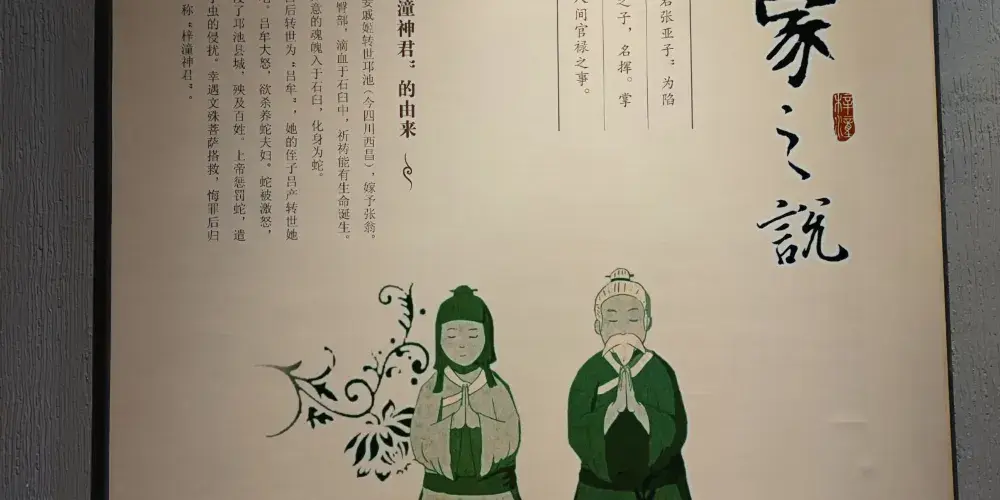 家之說
梓潼
张亚子"：为陷
之子，名挥。掌
人间官禄之事。
潼神君"的由来
戚姬转世邛池（今四川西昌），嫁予张翁。
臀部，滴血于石臼中，祈祷能有生命诞生。
意的魂魄入于石臼，化身为蛇。
后转世为"吕牟"，她的侄子吕产转世她
。吕牟大怒，欲杀养蛇夫妇。蛇被激怒，
了邛池县城，殃及百姓。上帝惩罚蛇，遣
虫的侵扰。幸遇文殊菩萨搭救，悔罪后归
称"梓潼神君"。